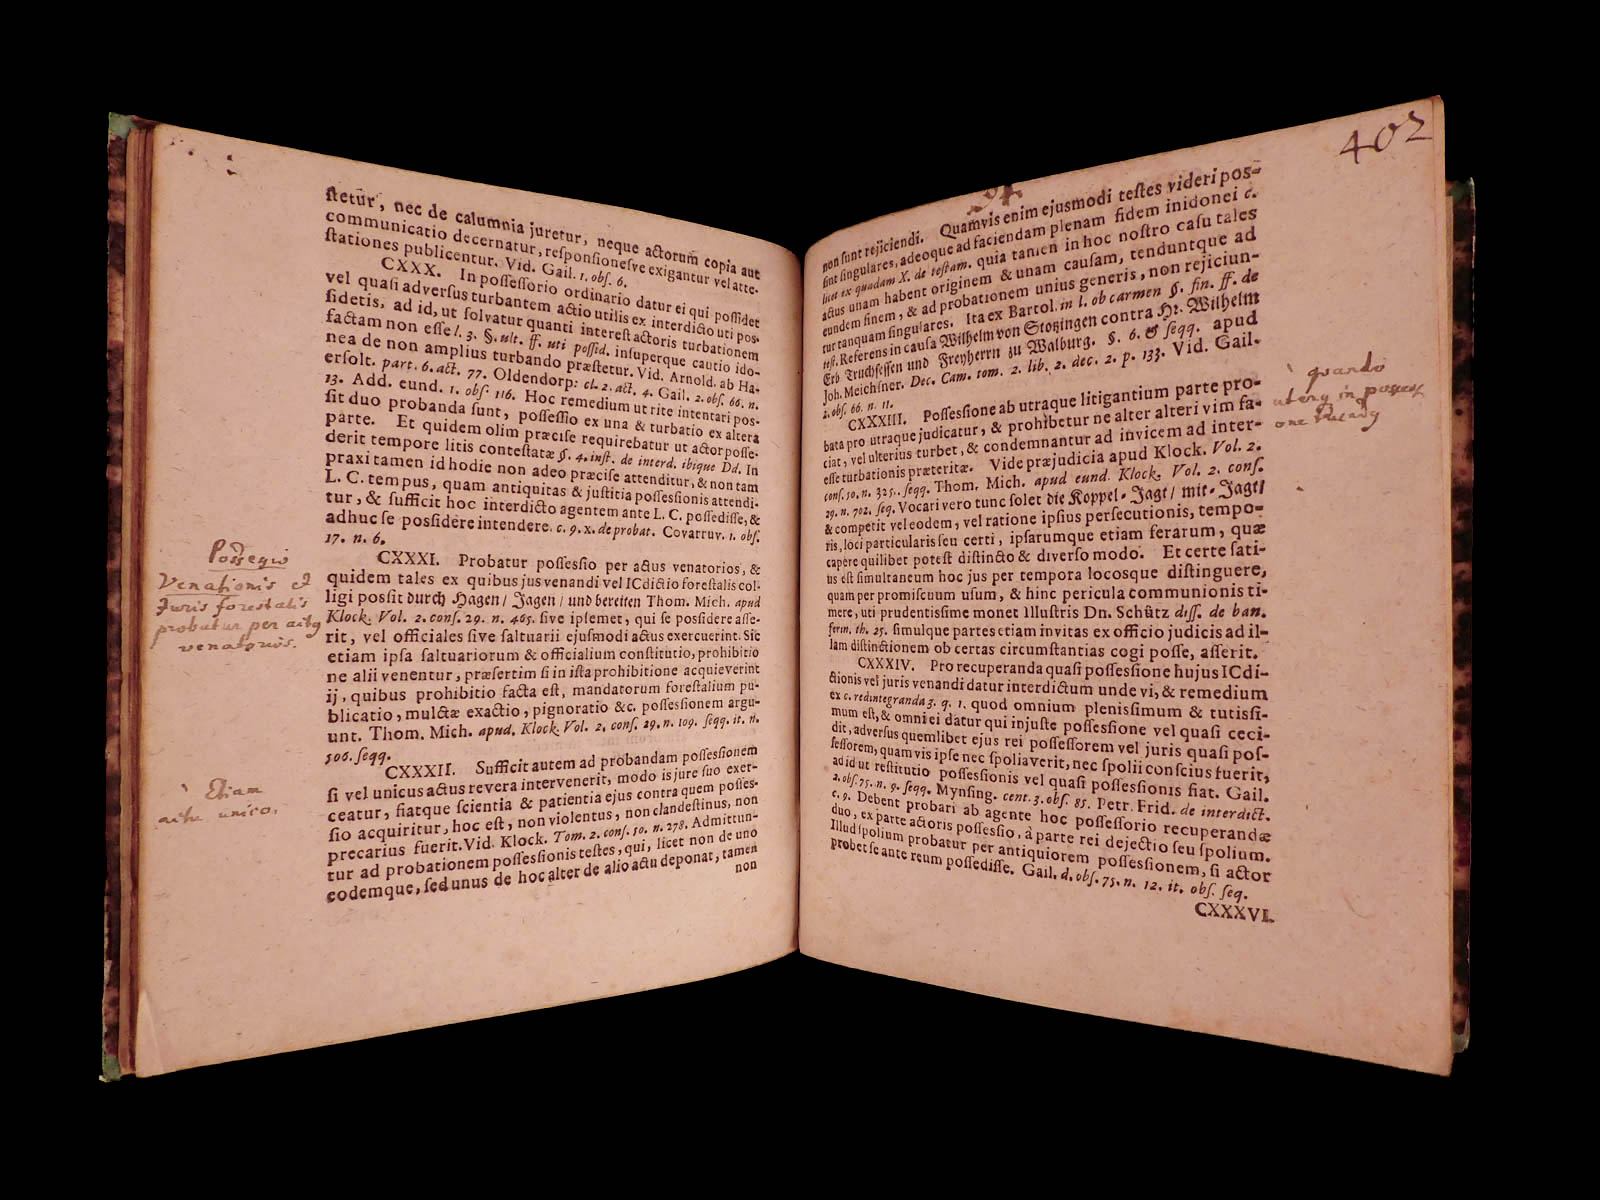 ſtetur, nec de calumnia juretur, neque actorum copia aut
communicatio decernatur, reſponſioneſve exigantur vel atte-
ſtationes publicentur. Vid. Gail. 1. obſ. 6.
CXXX. In poſſeſſorio ordinario datur ei qui poſſidet
vel quaſi adverſus turbantem actio utilis ex interdicto uti poſ-
ſidetis, ad id, ut ſolvatur quanti intereſt actoris turbationem
factam non eſſe l. 3. §. ult. ff. uti poſſid. inſuperque cautio ido-
nea de non amplius turbando præſtetur. Vid. Arnold. ab Ha-
erſolt. part. 6. act. 77. Oldendorp: cl. 2. act. 4. Gail. 2. obſ. 66. n.
13. Add. eund. 1. obſ. 116. Hoc remedium ut rite intentari poſ-
ſit duo probanda ſunt, poſſeſſio ex una & turbatio ex altera
parte. Et quidem olim præciſe requirebatur ut actor poſſe-
derit tempore litis conteſtatæ §. 4. inſt. de interd. ibique Dd. In
praxi tamen id hodie non adeo præciſe attenditur, & non tam
L. C. tempus, quam antiquitas & juſtitia poſſeſſionis attendi-
tur, & ſufficit hoc interdicto agentem ante L. C. poſſediſſe, &
adhuc ſe poſſidere intendere. c. 9. x. de probat. Covarruv. 1. obſ.
17. n. 6.
CXXXI. Probatur poſſeſſio per actus venatorios, &
quidem tales ex quibus jus venandi vel ICdictio foreſtalis col-
ligi poſſit durch Hagen/ Jagen/ und bereiten Thom. Mich. apud
Klock. Vol. 2. conſ. 29. n. 465. ſive ipſemet, qui ſe poſſidere aſſe-
rit, vel officiales ſive ſaltuarii ejuſmodi actus exercuerint. Sic
etiam ipſa ſaltuariorum & officialium conſtitutio, prohibitio
ne alii venentur, præſertim ſi in iſta prohibitione acquieverint
ij, quibus prohibitio facta eſt, mandatorum foreſtalium pu-
blicatio, mulctæ exactio, pignoratio &c. poſſeſſionem argu-
unt. Thom. Mich. apud. Klock. Vol. 2. conſ. 29. n. 109. ſeqq. it. n.
506. ſeqq.
CXXXII. Sufficit autem ad probandam poſſeſſionem
ſi vel unicus actus revera intervenerit, modo is jure ſuo exer-
ceatur, fiatque ſcientia & patientia ejus contra quem poſſeſ-
ſio acquiritur, hoc eſt, non violentus, non clandeſtinus, non
precarius fuerit. Vid. Klock. Tom. 2. conſ. 50. n. 278. Admittun-
tur ad probationem poſſeſſionis teſtes, qui, licet non de uno
eodemque, ſed unus de hoc alter de alio actu deponat, tamen
non
Poſſeſſio
Venationis et
Juris forestalis
probatur per actus
venatorios.
Etiam
actu unico.
402
94.
non ſunt rejiciendi. Quamvis enim ejuſmodi teſtes videri poſ-
ſint ſingulares, adeoque ad faciendam plenam fidem inidonei c.
licet ex quadam X. de teſtam. quia tamen in hoc noſtro caſu tales
actus unam habent originem & unam cauſam, tenduntque ad
eundem finem, & ad probationem unius generis, non rejiciun-
tur tanquam ſingulares. Ita ex Bartol. in l. ob carmen §. fin. ff. de
teſt. Referens in cauſa Wilhelm von Stotzingen contra Hr. Wilhelm
Erb Truchſeſſen und Freyherrn zu Walburg. §. 6. & ſeqq. apud
Joh. Meichſner. Dec. Cam. tom. 2. lib. 2. dec. 2. p. 133. Vid. Gail.
2. obſ. 66. n. 11.
CXXXIII. Poſſeſſione ab utraque litigantium parte pro-
bata pro utraque judicatur, & prohibetur ne alter alteri vim fa-
ciat, vel ulterius turbet, & condemnantur ad invicem ad inter-
eſſe turbationis præteritæ. Vide præjudicia apud Klock. Vol. 2.
conſ. 50. n. 325. ſeqq. Thom. Mich. apud eund. Klock. Vol. 2. conſ.
29. n. 702. ſeq. Vocari vero tunc ſolet die Koppel-Jagt/ mit-Jagt/
& competit vel eodem, vel ratione ipſius perſecutionis, tempo-
ris, loci particularis ſeu certi, ipſarumque etiam ferarum, quæ
capere quilibet poteſt diſtincto & diverſo modo. Et certe ſati-
us eſt ſimultaneum hoc jus per tempora locosque diſtinguere,
quam per promiſcuum uſum, & hinc pericula communionis ti-
mere, uti prudentiſſime monet Illuſtris Dn. Schütz diſſ. de ban.
ferin. th. 25. ſimulque partes etiam invitas ex officio judicis ad il-
lam diſtinctionem ob certas circumſtantias cogi poſſe, aſſerit.
CXXXIV. Pro recuperanda quaſi poſſeſſione hujus ICdi-
ctionis vel juris venandi datur interdictum unde vi, & remedium
ex c. redintegranda 3. q. 1. quod omnium pleniſſimum & tutiſſi-
mum eſt, & omni ei datur qui injuſte poſſeſſione vel quaſi ceci-
dit, adverſus quemlibet ejus rei poſſeſſorem vel juris quaſi poſ-
ſeſſorem, quamvis ipſe nec ſpoliaverit, nec ſpolii conſcius fuerit,
ad id ut reſtitutio poſſeſſionis vel quaſi poſſeſſionis fiat. Gail.
2. obſ. 75. n. 9. ſeqq. Mynſing. cent. 3. obſ. 85. Petr. Frid. de interdict.
c. 9. Debent probari ab agente hoc poſſeſſorio recuperandæ
duo, ex parte actoris poſſeſſio, à parte rei dejectio ſeu ſpolium.
Illud ſpolium probatur per antiquiorem poſſeſſionem, ſi actor
probet ſe ante reum poſſediſſe. Gail. d. obſ. 75. n. 12. it. obſ. ſeq.
CXXXVI.
quando
uterq in possessi
one